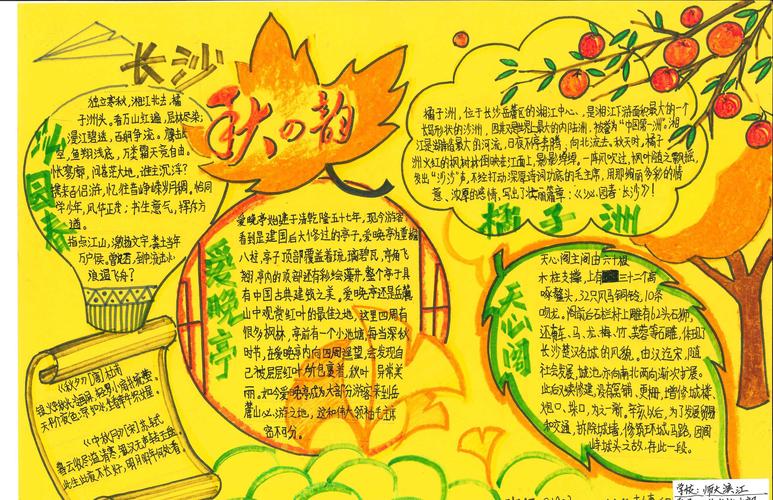 长沙
秋の韵
沁园春
独立寒秋,湘江北去,橘
子洲头,看万山红遍,层林尽染;
漫江碧透,百舸争流。鹰击长
空,鱼翔浅底,万类霜天竞自由。
怅寥廓,问苍茫大地,谁主沉浮?
携来百侣游,忆往昔峥嵘岁月稠,恰同
学少年,风华正茂;书生意气,挥斥方
遒。
指点江山,激扬文字,粪土当年
万户侯。曾记否,到中流击水,
浪遏飞舟?
橘子洲,位于长沙岳麓区的湘江中心,是湘江下游面积最大的一个
长岛形状的沙洲,
被誉为“中国第一洲”。湘
江是湖南最大的河流,日夜不停奔腾,向北流去。秋天时,橘子
洲火红的枫树林倒映在江面上,影影绰绰,一阵风吹过,枫叶随之飘摇,
发出“沙沙”声,不经打动深厚诗词功底的毛主席,用那绚丽多彩的情
意、浓厚的感情,写出了壮丽篇章:《沁园春·长沙》!
橘子洲
爱晚亭
爱晚亭始建于清乾隆五十七年,现今游客
看到是建国后大修过的亭子。爱晚亭为重檐
八柱,亭子顶部覆盖着琉璃碧瓦,亭角飞
翘,亭内的顶部还有彩绘藻井,整个亭子具
有中国古典建筑之美,爱晚亭还是岳麓
山中观赏红叶的最佳之地,这里四周有
很多枫林,亭前有一个小池塘,每当深秋
时节,在爱晚亭内向四周遥望,会发现自
己被层层红叶所包裹着,秋叶异常美
丽。如今爱晚亭成为大部分游客来到岳
麓山必游之地,这和伟大领袖毛主席
密不可分。
天心阁
天心阁主阁由六十根
木柱支撑,上有三十二个高
啄鳌头,32只风马铜铃,10条
吻龙。阁前后石栏杆上雕有62头石狮,
还有车、马、龙、梅、竹、芙蓉等石雕,体现了
长沙楚汉名城的风貌。由汉迄宋,随
社会发展,城池亦向南北两向渐次扩展。
此后又续修建,增修城楼、
炮口、垛口,为之一新。辛亥以后,为了发展贸易
和交通,拆除城墙,修筑环城马路,因阁
峙城头之故,存此一段。
《秋夕》(唐)杜牧
银烛秋光冷画屏,轻罗小扇扑流萤。
天阶夜色凉如水,坐看牵牛织女星。
《中秋月》(宋)苏轼
暮云收尽溢清寒,银汉无声转玉盘。
此生此夜不长好,明月明年何处看。
学校:师大滨江